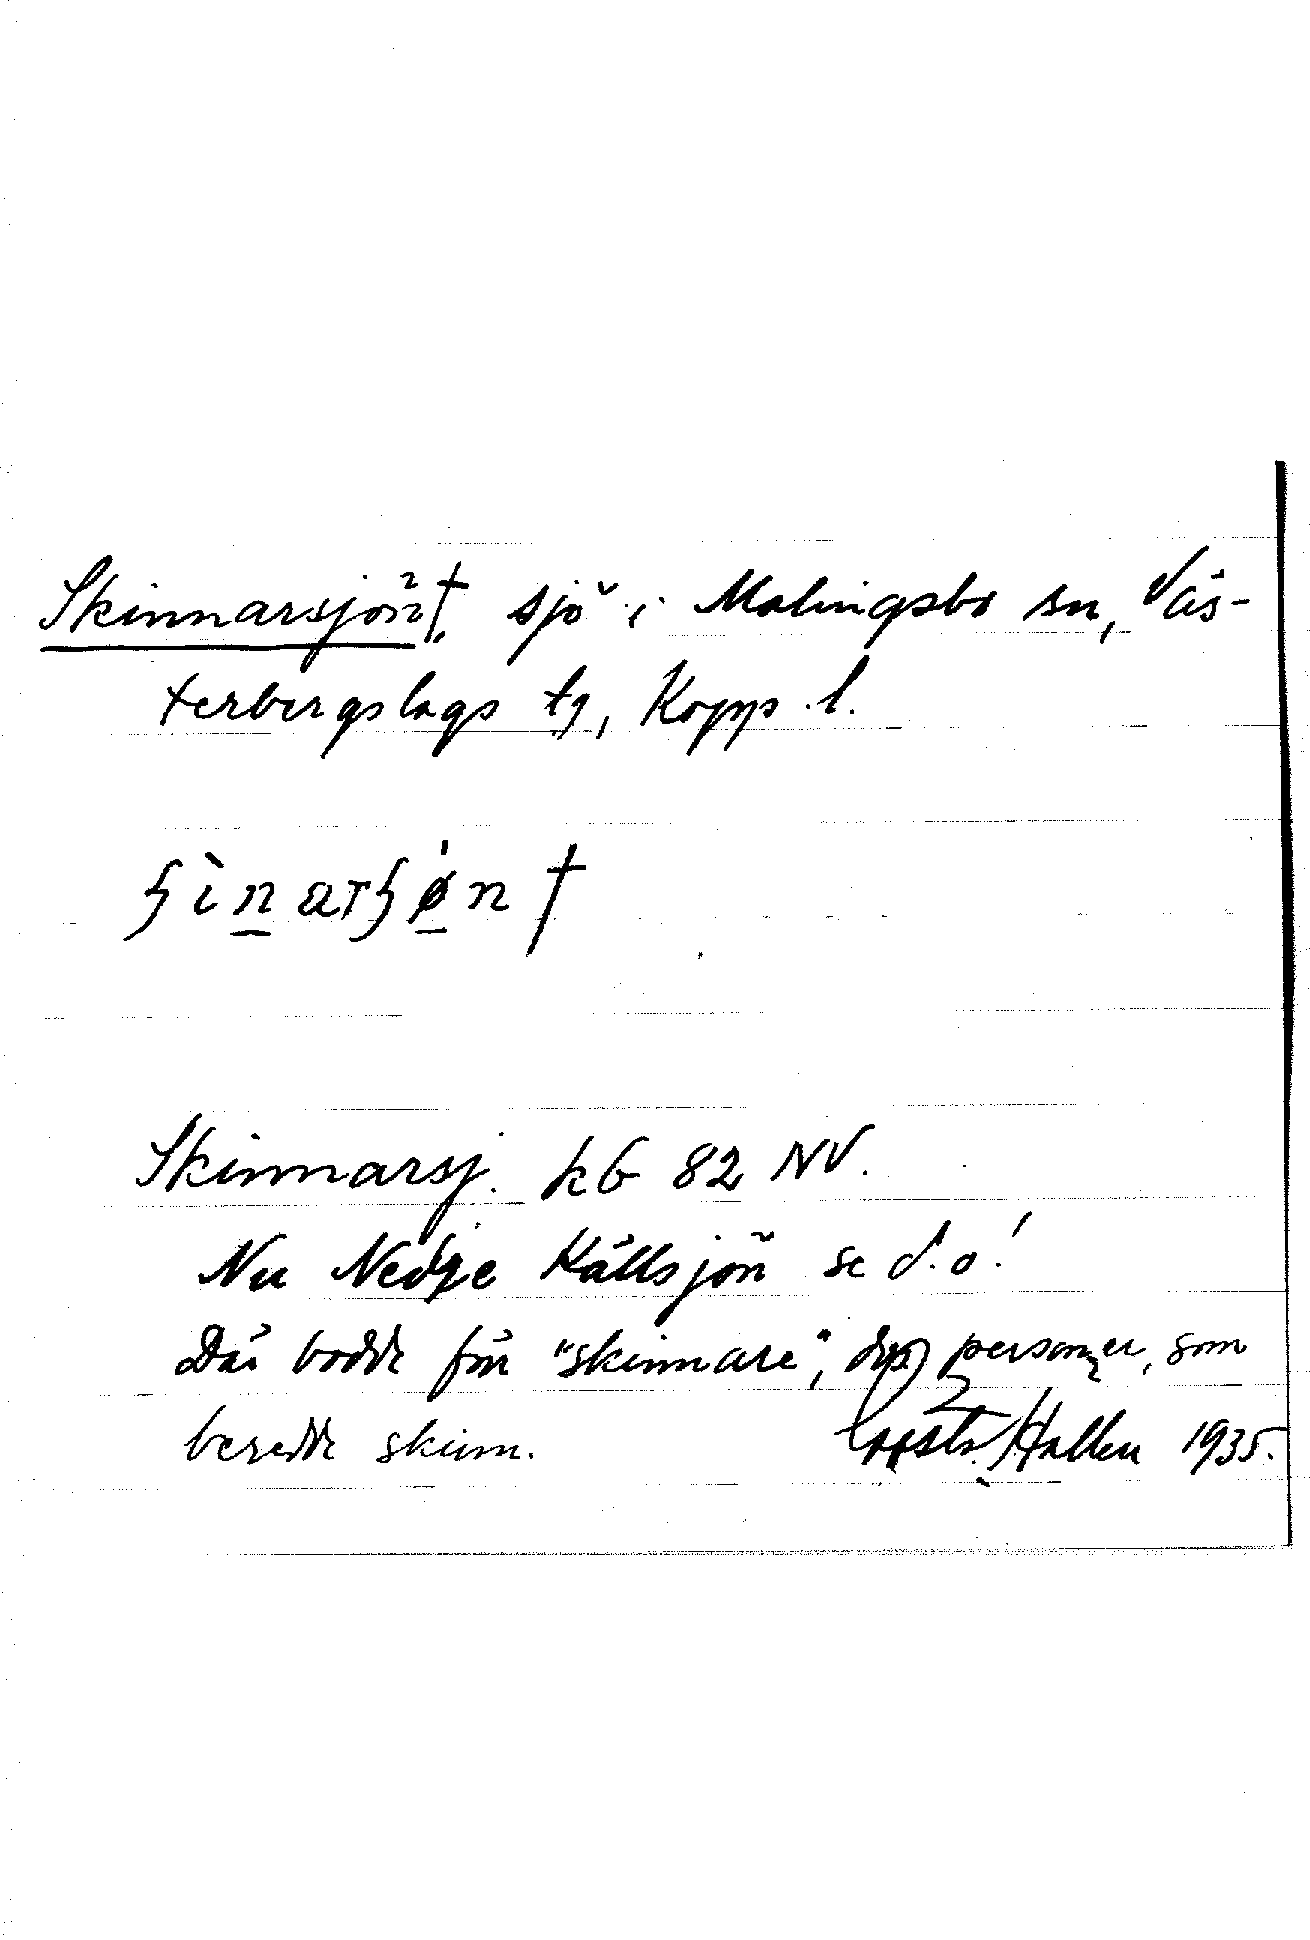 Skinnarsjön†, sjö i Malingsbo sn, Väs-
terbergslags tg, Kopp. l.
ʃìnarʃøn †
Skinnarsj. kb 82 NV.
Nu Nedre Källsjön se d.o!
Där bodde förr "skinnare", dvs personer, som
beredde skinn. Gösta Hallen 1935.